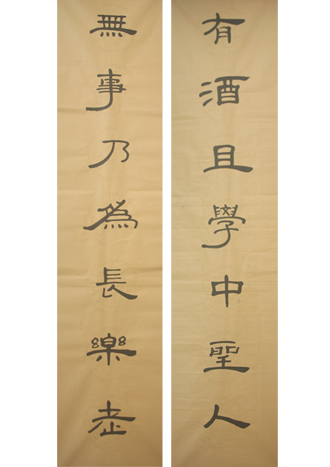 有酒且學中聖人
無事乃為長樂老